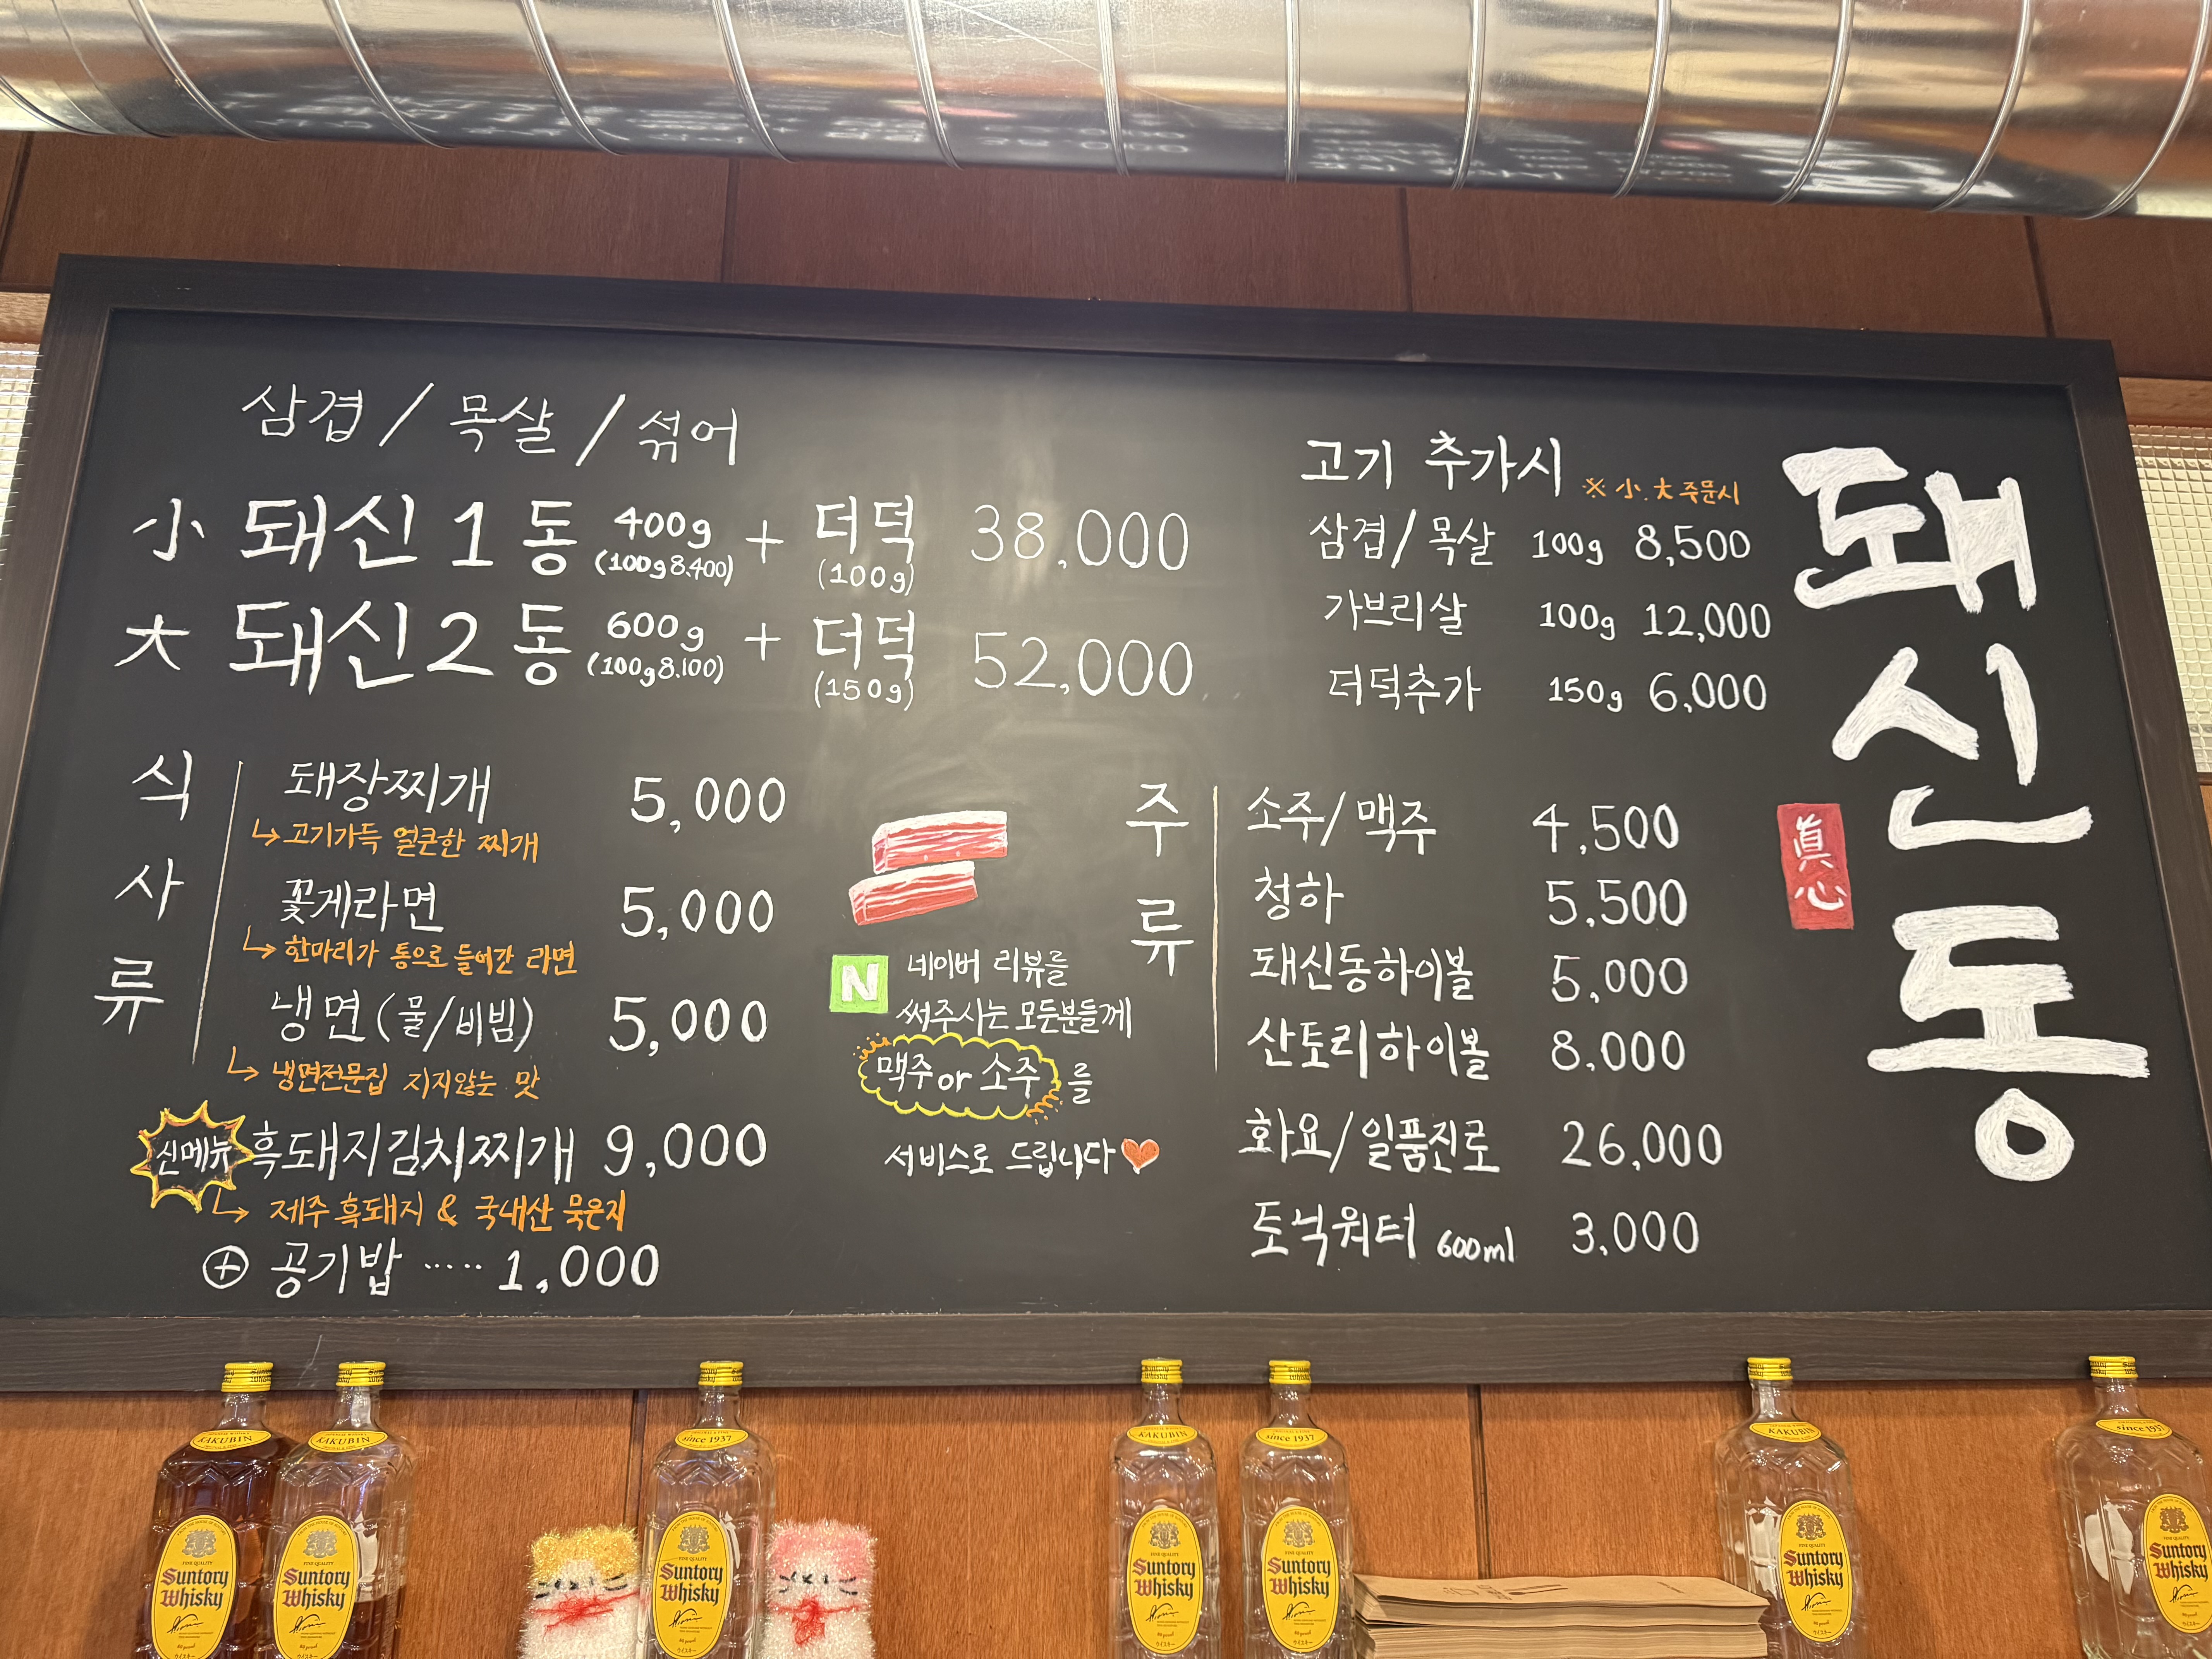 삼겹 / 목살 / 섞어
小 돼신 1 동 400g (100g 8.400) + 더덕 (100g) 38,000
大 돼신 2 동 600g (100g 8.100) + 더덕 (150g) 52,000
고기 추가시 ※ 小.大 주문시
삼겹/목살 100g 8,500
가브리살 100g 12,000
더덕추가 150g 6,000
돼신동
眞心
식사류
돼장찌개 5,000
↳ 고기가득 얼큰한 찌개
꽃게라면 5,000
↳ 한마리가 통으로 들어간 라면
냉면 (물/비빔) 5,000
↳ 냉면전문집 지지않는 맛
신메뉴 흑돼지김치찌개 9,000
↳ 제주 흑돼지 & 국내산 묵은지
⊕ 공기밥 ····· 1,000
N 네이버 리뷰를
써주시는 모든분들께
맥주 or 소주 를
서비스로 드립니다
주류
소주/맥주 4,500
청하 5,500
돼신동하이볼 5,000
산토리하이볼 8,000
화요/일품진로 26,000
토닉워터 600ml 3,000
KAKUBIN
SUNTORY Whisky
KAKUBIN
SUNTORY Whisky
since 1937
SUNTORY Whisky
SUNTORY Whisky
since 1937
SUNTORY Whisky
KAKUBIN
SUNTORY Whisky
SUNTORY Whisky